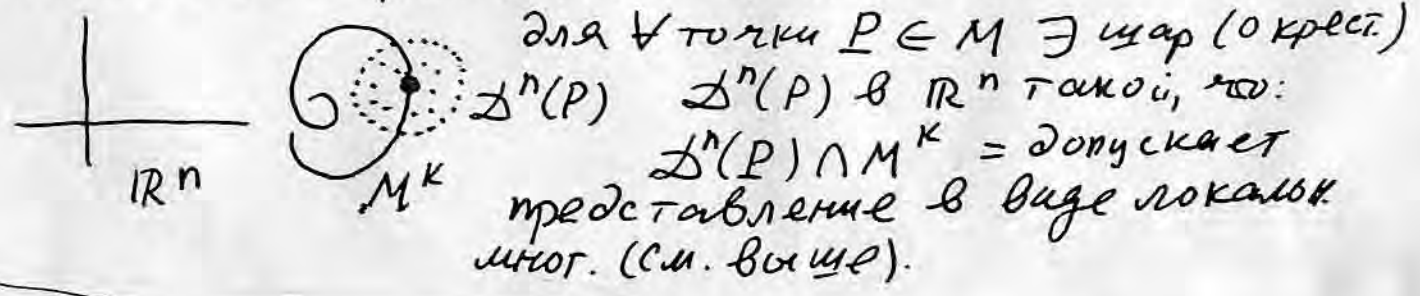 для ∀ точки P ∈ M ∃ шар (окрест.)
D^n(P) D^n(P) в ℝ^n такой, что:
ℝ^n M^k D^n(P) ∩ M^k = допускает
представление в виде локальн.
мног. (см. выше).